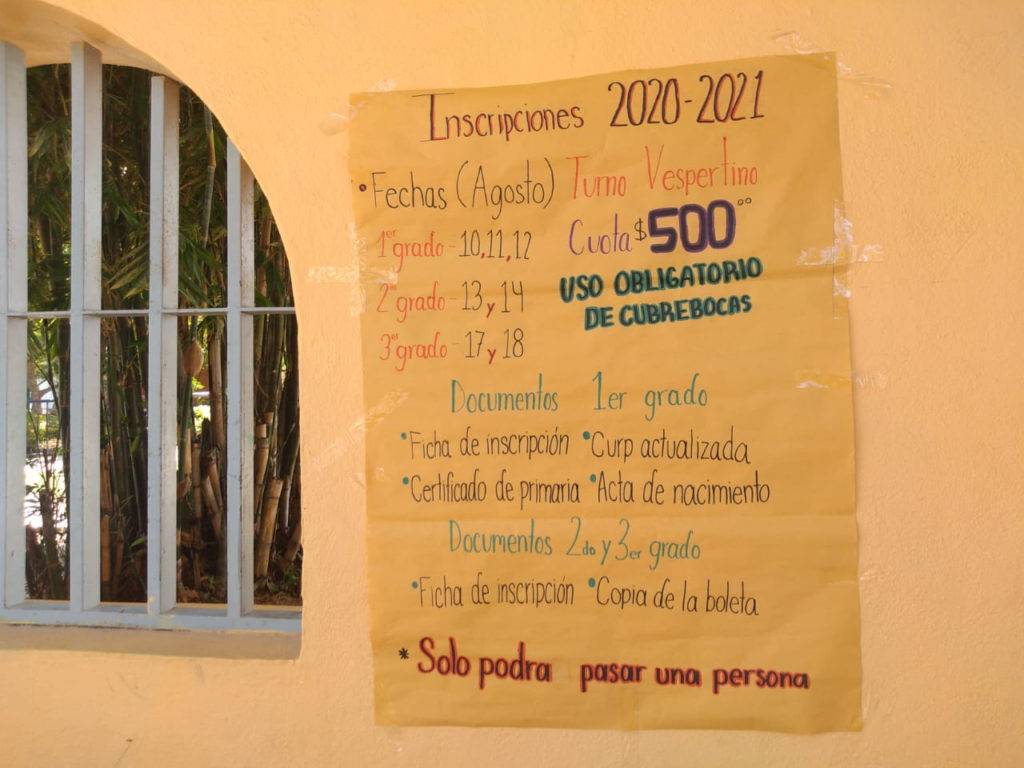 Inscripciones 2020-2021
•Fechas (Agosto) Turno Vespertino
1er grado - 10,11,12 Cuota $500.00
2do grado - 13 y 14 USO OBLIGATORIO
DE CUBREBOCAS
3er grado - 17 y 18
Documentos 1er grado
•Ficha de inscripción •Curp actualizada
•Certificado de primaria •Acta de nacimiento
Documentos 2do y 3er grado
•Ficha de inscripción •Copia de la boleta
* Solo podra pasar una persona